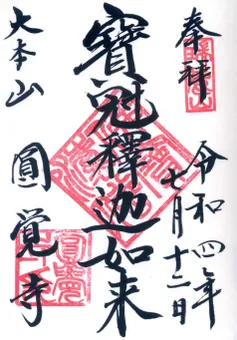 奉拝
令和四年
七月十二日
寶冠釋迦如来
大本山
圓覚寺